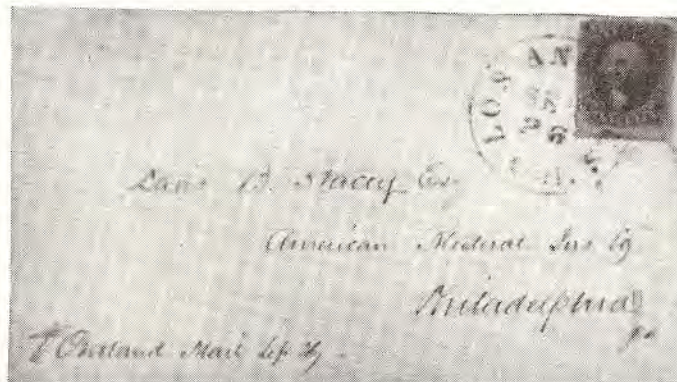 LOS AN
26
B. Stacey Esq
American Mutual Ins Co
Philadelphia
Pa
Overland Mail Sep